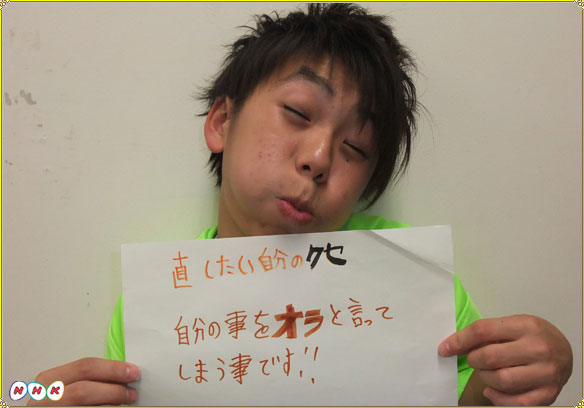 直したい自分のクセ
自分の事をオラと言って
しまう事です!!
NHK